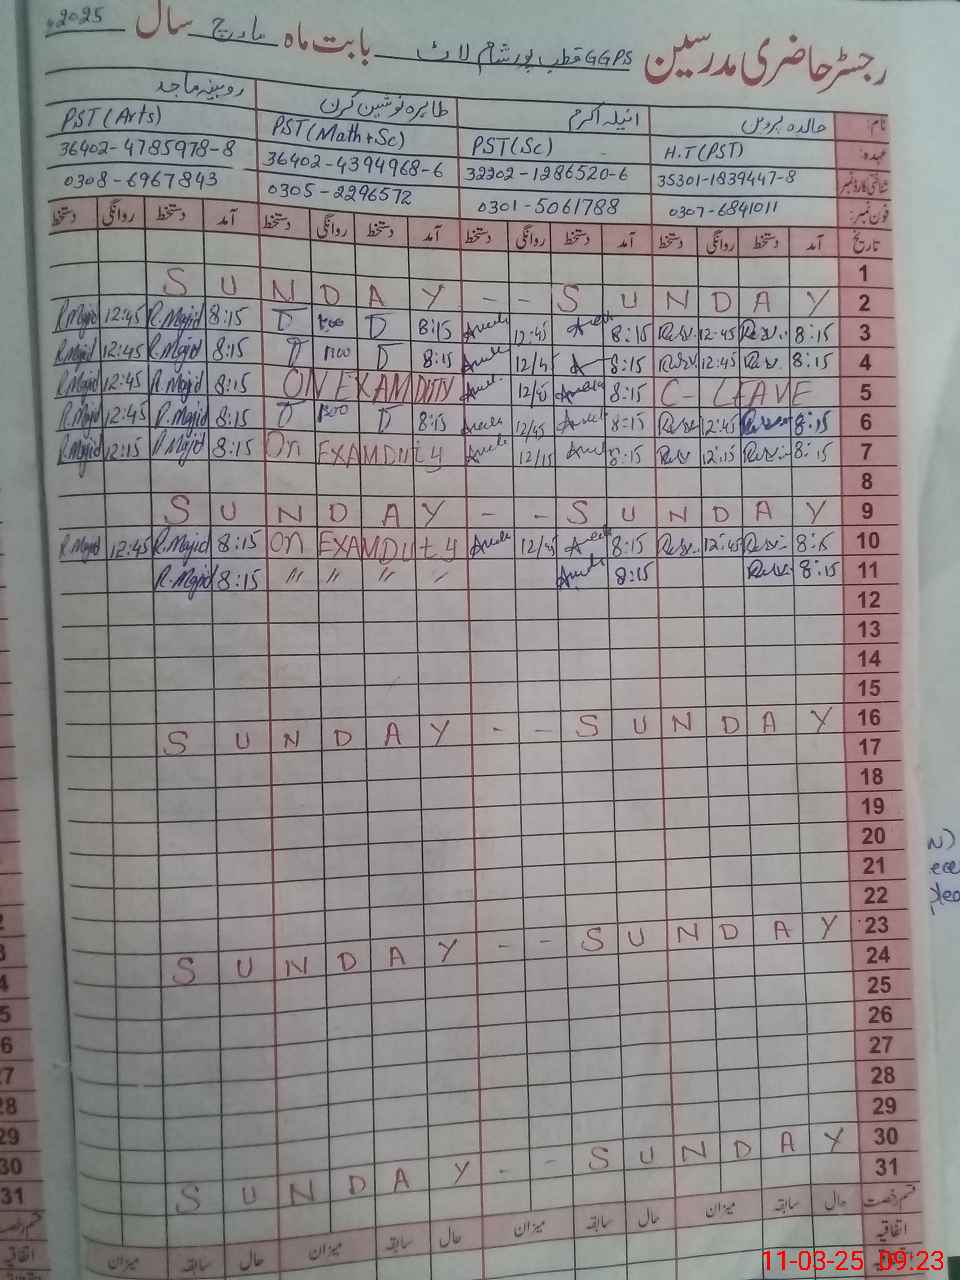 رجسٹر حاضری مدرسین GGPS قطب پور شام لاٹ بابت ماہ مارچ سال 2025ء
نام: خالدہ پروین انیلہ اکرم طاہرہ نوشین کرن روبینہ ماجد
عہدہ: H.T(PST) PST(Sc) PST(Math+Sc) PST(Arts)
شناختی کارڈ نمبر 35301-1839447-8 32202-1286520-6 36402-4394968-6 36402-4785978-8
فون نمبر: 0307-6841011 0301-5061788 0305-2296572 0308-6967843
تاریخ آمد دستخط روانگی دستخط آمد دستخط روانگی دستخط آمد دستخط روانگی دستخط آمد دستخط روانگی دستخط
1
SUNDAY -- SUNDAY 2
R.Majid 12:45 R.Majid 8:15 8:15 12:45 8:15 12:45 8:15 3
R.Majid 12:45 R.Majid 8:15 8:15 12/45 8:15 12:45 8:15 4
R.Majid 12:45 R.Majid 8:15 ON EXAM DUTY 12/45 8:15 C- LEAVE 5
R.Majid 12:45 R.Majid 8:15 8:15 12/45 8:15 12:45 8:15 6
R.Majid 12:15 R.Majid 8:15 On EXAM Duty 12/15 8:15 12:15 8:15 7
8
SUNDAY -- SUNDAY 9
R.Majid 12:45 R.Majid 8:15 On EXAM Duty 12/45 8:15 12:45 8:15 10
R.Majid 8:15 〃 〃 〃 〃 8:15 8:15 11
12
13
14
15
SUNDAY -- SUNDAY 16
17
18
19
20
21
22
SUNDAY -- SUNDAY 23
24
25
26
27
28
29
SUNDAY -- SUNDAY 30
31
قسم رخصت حال سابقہ میزان حال سابقہ میزان حال سابقہ میزان حال سابقہ میزان
اتفاقیہ
11-03-25 09:23